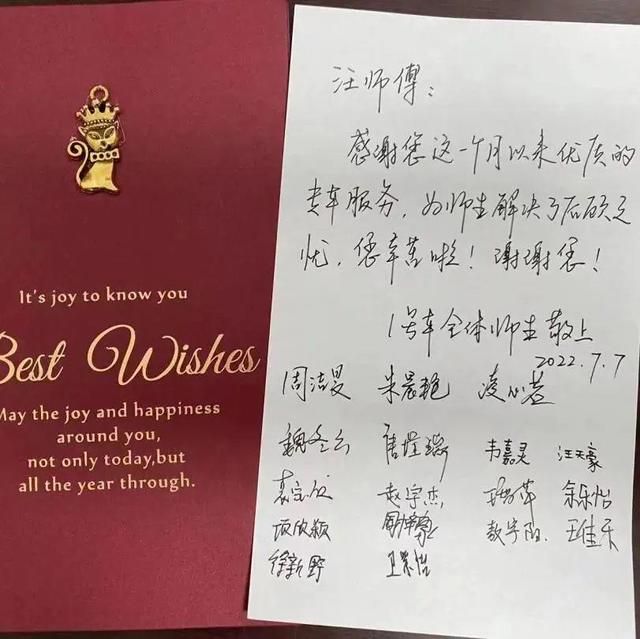 It's joy to know you
Best Wishes
May the joy and happiness
around you,
not only today,but
all the year through.
汪师傅：
感谢您这一个月以来优质的
专车服务，为师生解决了后顾之
忧，您辛苦啦！谢谢您！
1号车全体师生敬上
2022.7.7
周洁旻 朱晨艳 凌心若
魏冬云 唐瑞 韦嘉灵 汪天豪
赵宇杰 余乐怡
项欣颖 王佳乐
徐新野 卫紫怡